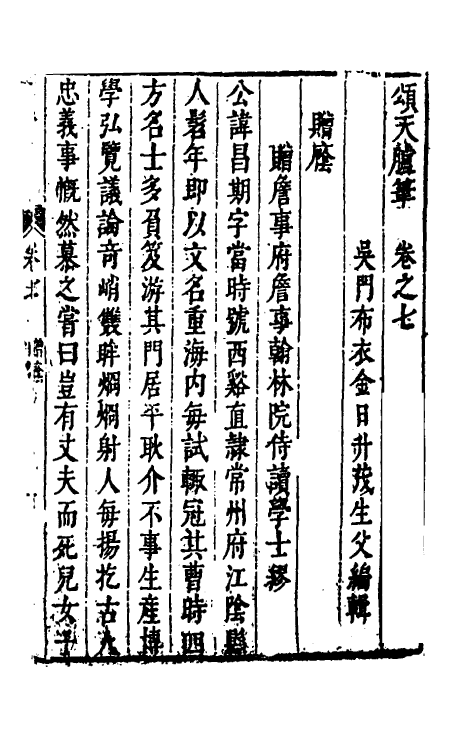 頌天臚筆 卷之七
吳門布衣金日升茂生父編輯
贈廕
贈詹事府詹事翰林院侍讀學士繆
公諱昌期字當時號西谿直隸常州府江陰縣
人髫年即以文名重海内每試輙冠其曹時四
方名士多負笈游其門居平耿介不事生產博
學弘覽議論竒峭雙眸烱烱射人每揚扢古人
忠義事慨然慕之嘗曰豈有丈夫而死兒女子
卷七